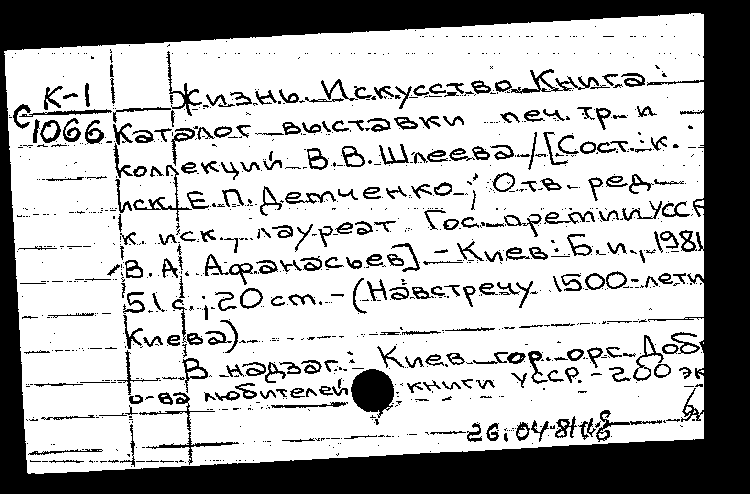 К-1
С 1066
Жизнь. Искусство. Книга:
Каталог выставки печ. тр. и
коллекций В.В. Шлеева / [Сост.: к.
иск. Е.П. Демченко; Отв. ред.
к. иск., лауреат Гос. премии УССР
В.А. Афанасьев]. - Киев: Б.и., 1981
51 с.; 20 cm. - (Навстречу 1500-лети
Киева)
В надзаг.: Киев. гор. орг. Добр
о-ва любителей книги УССР. - 200 эк
26.04 81